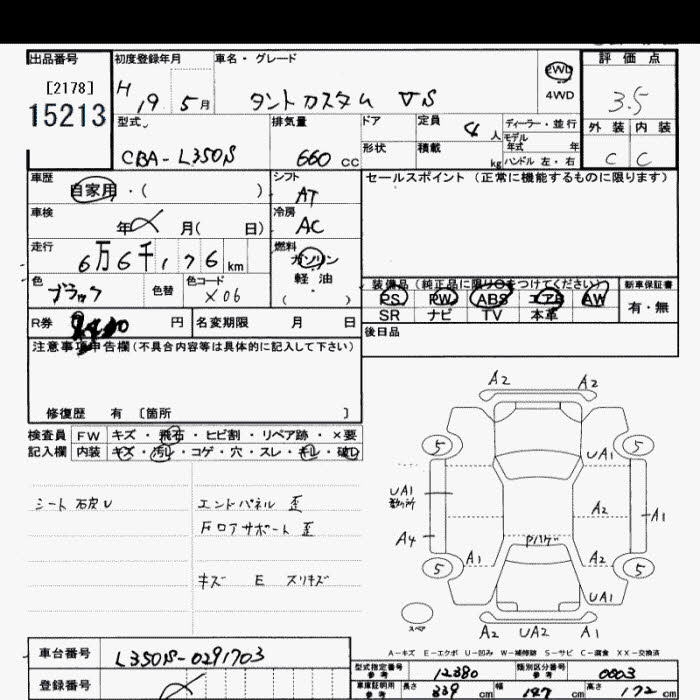 出品番号 初度登録年月 車名・グレード 2WD 評価点
[2178] H 19 5月 タントカスタム VS 4WD 3.5
15213 型式 排気量 ドア 定員 4人 ディーラー・並行 外装 内装
CBA-L350S 660 CC 形状 積載 kg モデル年式 年 ハンドル 左・右 C C
車歴 自家用・( ) シフト AT セールスポイント (正常に機能するものに限ります)
車検 年 月( 日) 冷房 AC
走行 6万6千176 km 燃料 ガソリン
色 ブラック 色替 色コード X06 軽油 ( ・ )
装備品 (純正品に限り○をつけてください) 新車保証書
PS PW ABS エアB AW 有・無
SR ナビ TV 本革
R券 円 名変期限 月 日 後日品
注意事項申告欄(不具合内容等は具体的に記入して下さい)
修復歴 有 〔箇所 〕
検査員 FW キズ・飛石・ヒビ割・リペア跡・×要
記入欄 内装 キズ・汚レ・コゲ・穴・スレ・キレ・破レ
エンドパネル 歪
フロアサポート 歪
キズ E スリキズ
A2 A2
5 5
UA1
UA1
A2 A1
A4
A1 A2
5 5
UA1
スペア
A2 UA2 A1
A-キズ E-エクボ U-凹み W-補修跡 S-サビ C-腐食 XX-交換済
車台番号 L350S-0291703
登録番号
型式指定番号 参考 12380 類別区分番号 参考 0003
車庫証明用 参考 長さ 339 cm 幅 147 cm 高さ 172 cm